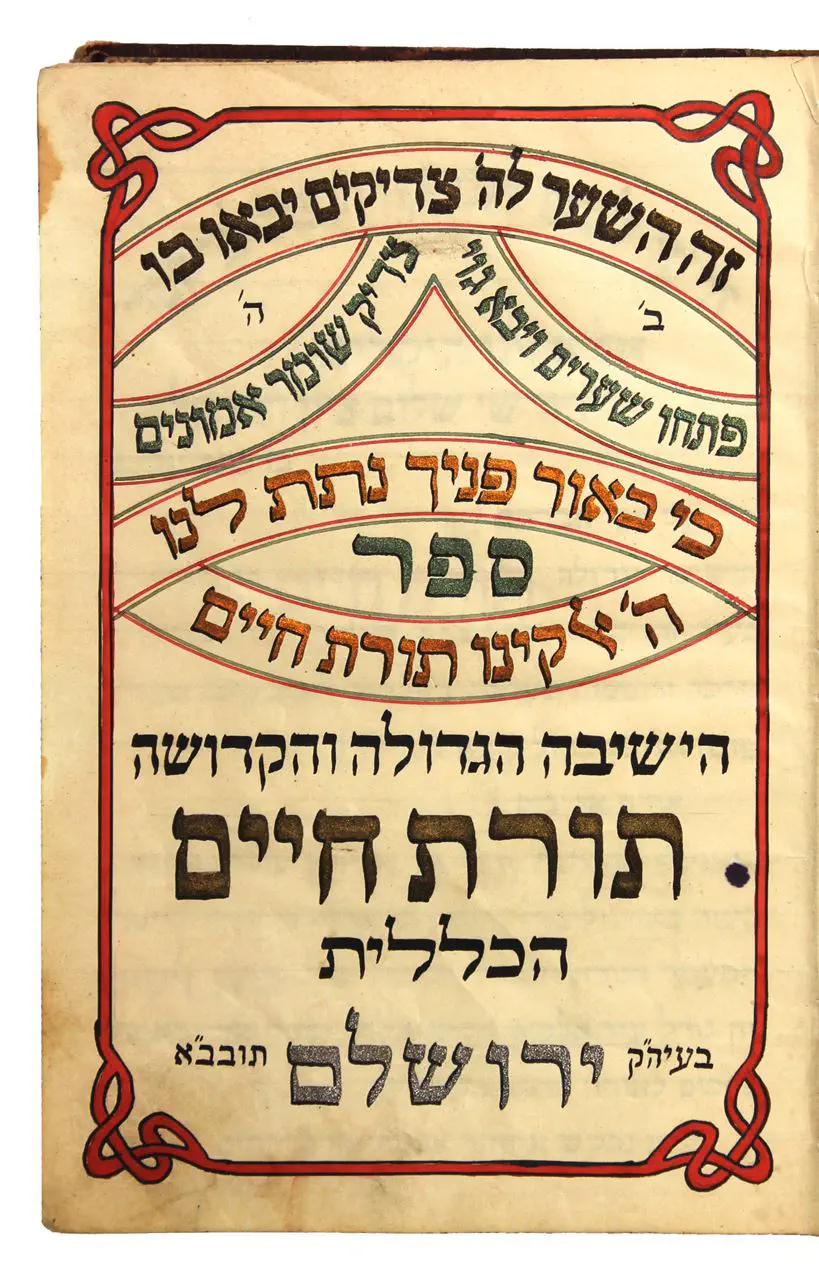 זה השער לה' צדיקים יבאו בו
ב'
ה'
פתחו שערים ויבא גוי
צדיק שומר אמונים
כי באור פניך נתת לנו
ספר
ה' אלקינו תורת חיים
הישיבה הגדולה והקדושה
תורת חיים
הכללית
בעיה"ק ירושלם תובב"א